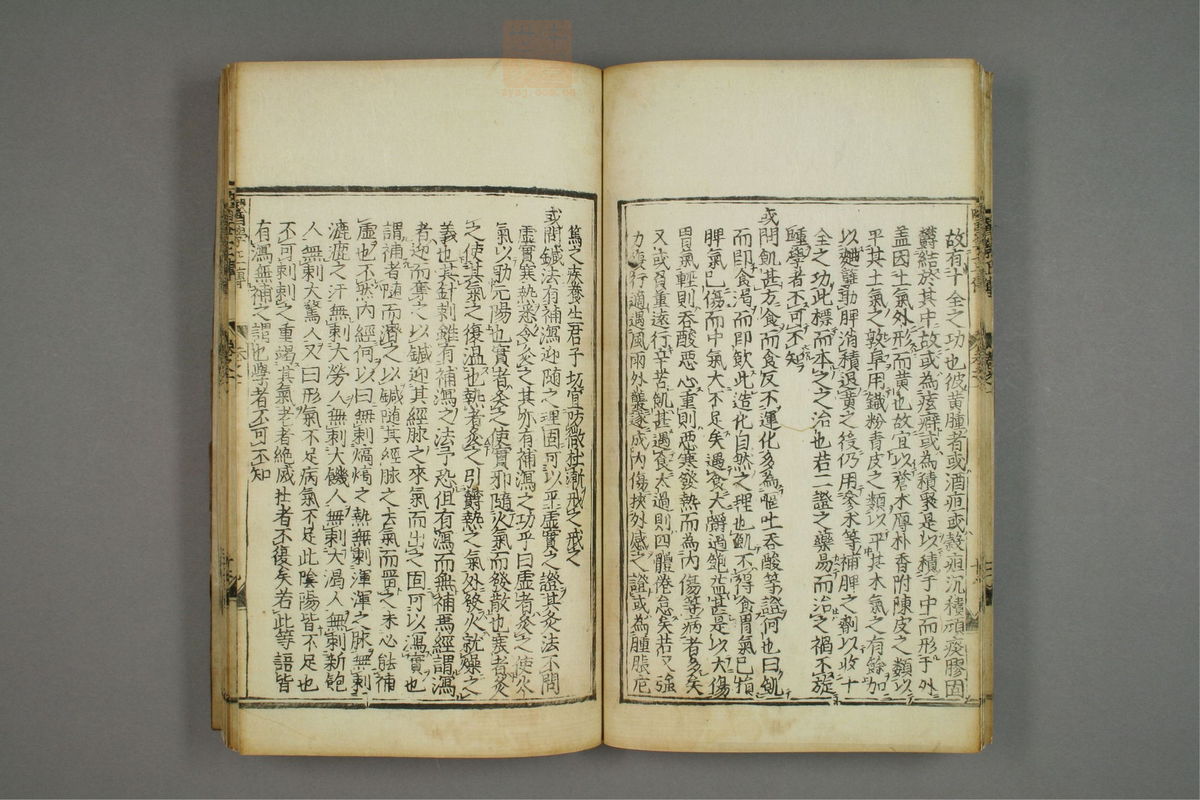 故有十全之功也彼黄腫者或酒疸或穀疸沉積頑痰膠固
欝結於其中故或為痃癖或為積聚是以積于中而形于外
盖因土氣外形而黄也故宜以蒼朮厚朴香附陳皮之類以
平其土氣之敦阜用鐡粉青皮之類以平其木氣之有餘加
以麯蘖助脾消積退黄之後仍用參朮等補脾之劑以收十
全之功此標而本之之治也若二證之藥易而治之禍不旋
踵學者不可不知
或問飢甚方食而食反不運化多為嘔吐吞酸等證何也曰飢
而即食渴而即飲此造化自然之理也飢不得食胃氣已損
脾氣已傷而中氣大不足矣遇食大嚼過飽益甚是以大傷
胃氣輕則吞酸惡心重則惡寒發熱而為内傷等病者多矣
又或負重遠行辛苦飢甚遇食太過則四體倦怠矣若又強
力復行適遇風雨外襲遂成内傷挾外感之證或為腫脹危
篤之疾養生君子切宜防微杜漸戒之戒之
或問鍼法有補瀉迎随之理固可以平虚實之證其灸法不問
虚實寒熱悉令灸之其亦有補瀉之功乎曰虚者灸之使火
氣以助元陽也實者灸之使實邪随火氣而發散也寒者灸
之使其氣之復温也熱者灸之引欝熱之氣外發火就燥之
義也其針刺雖有補瀉之法予恐但有瀉而無補焉經謂瀉
者迎而奪之以鍼迎其經脉之來氣而出之固可以瀉實也
謂補者随而濟之以鍼随其經脉之去氣而留之未必能補
虚也不然内經何以曰無刺熇熇之熱無刺渾渾之脉無刺
漉漉之汗無刺大勞人無刺大饑人無刺大渴人無刺新飽
人無刺大驚人又曰形氣不足病氣不足此陰陽皆不足也
不可刺刺之重竭其氣老者絶滅壮者不復矣若此等語皆
有瀉無補之謂也學者不可不知